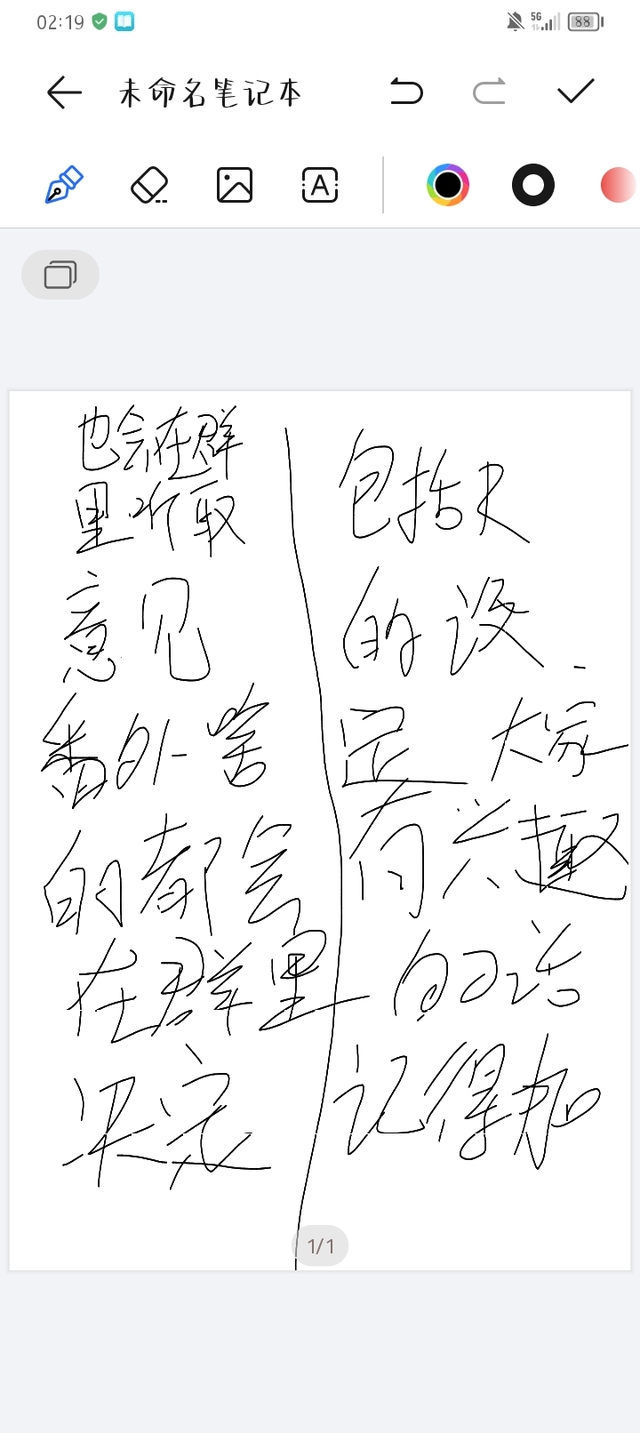 02:19
5G
88
未命名笔记本
A
也会在群
里听取
意见
番外啥
的都会
在群里
决定
包括
的设
定 大家
有兴趣
的话
记得
1/1